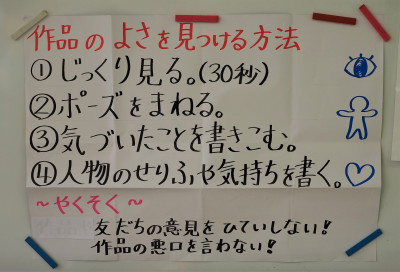 作品のよさを見つける方法
①じっくり見る。(30秒)
②ポーズをまねる。
③気づいたことを書きこむ。
④人物のせりふや気持ちを書く。
~やくそく~
友だちの意見をひていしない!
作品の悪口を言わない!